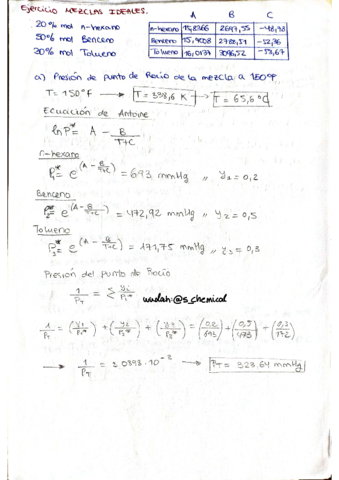 Ejercicio MEZCLAS IDEALES.
A B C
20% mol n-hexano
n-hexano 15,8366 2697,55 -48,78
50% mol Benceno
Benceno 15,9008 2788,51 -52,36
30% mol Tolueno
Tolueno 16,0137 3096,52 -53,67
a) Presión de punto de Rocío de la mezcla a 150°F.
T= 150°F → T = 338,6 K → T = 65,6 °C
Ecuación de Antoine
ln P* = A - B/(T+C)
n-hexano
P₁* = e^(A - B/(T+C)) = 693 mmHg ,, y₁ = 0,2
Benceno
P₂* = e^(A - B/(T+C)) = 472,92 mmHg ,, y₂ = 0,5
Tolueno
P₃* = e^(A - B/(T+C)) = 171,75 mmHg ,, y₃ = 0,3
Presión del punto de Rocío
1/P_T = Σ yi/Pi*
wuolah:@s_chemical
1/P_T = (y₁/P₁*) + (y₂/P₂*) + (y₃/P₃*) = (0,2/693) + (0,5/473) + (0,3/172)
→ 1/P_T = 3,0898·10⁻³ → P_T = 323,64 mmHg